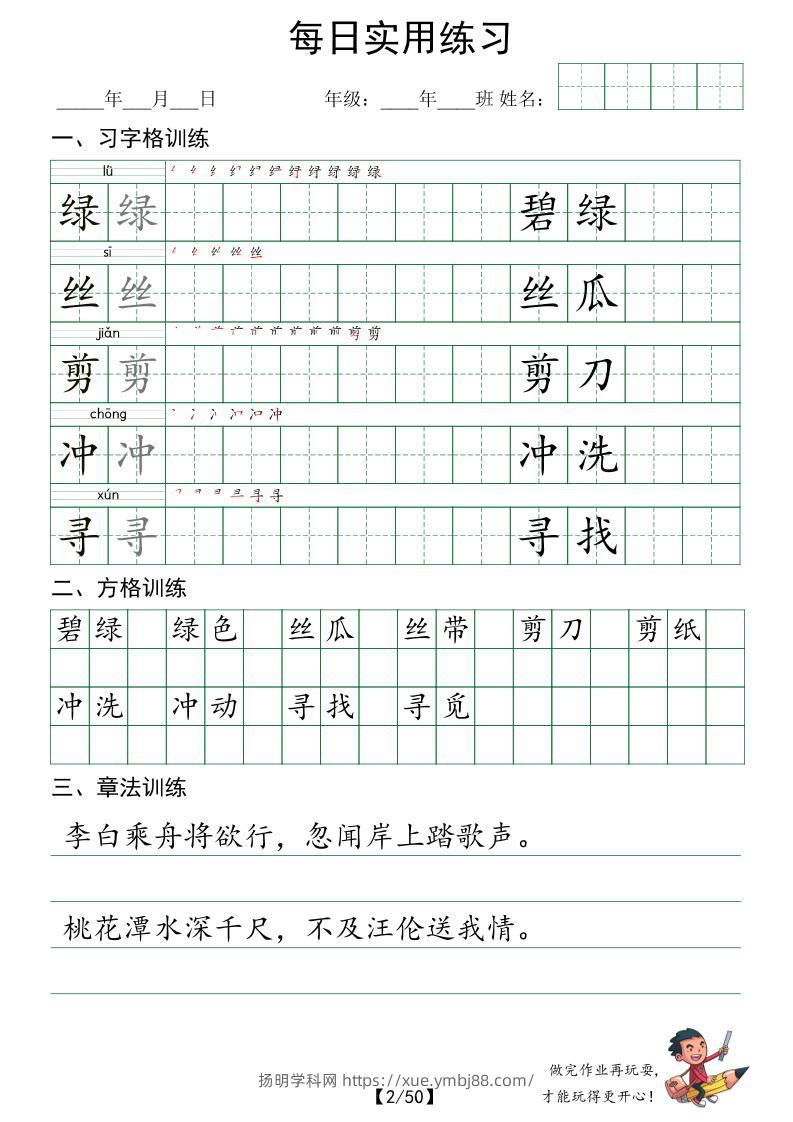 每日实用练习
_____年___月___日 年级：____年____班 姓名：
一、习字格训练
lǜ
绿 绿 碧 绿
sī
丝 丝 丝 瓜
jiǎn
剪 剪 剪 刀
chōng
冲 冲 冲 洗
xún
寻 寻 寻 找
二、方格训练
碧绿 绿色 丝瓜 丝带 剪刀 剪纸
冲洗 冲动 寻找 寻觅
三、章法训练
李白乘舟将欲行，忽闻岸上踏歌声。
桃花潭水深千尺，不及汪伦送我情。
做完作业再玩耍，
才能玩得更开心！
扬明学科网 https://xue.ymbj88.com/
【2/50】